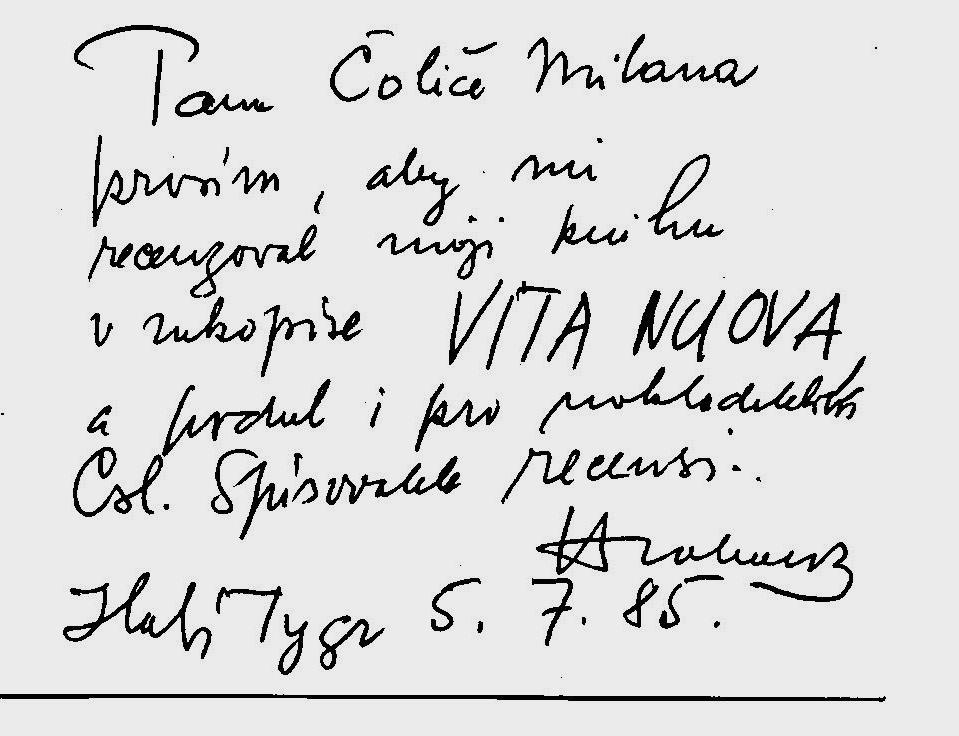 Pana Čoliče Milana
prosím, aby mi
recenzoval moji knihu
v rukopise VITA NUOVA
a podal i pro nakladatelství
Čsl. Spisovatel recensi.
Hrabal
Zlatý Tygr 5. 7. 85.